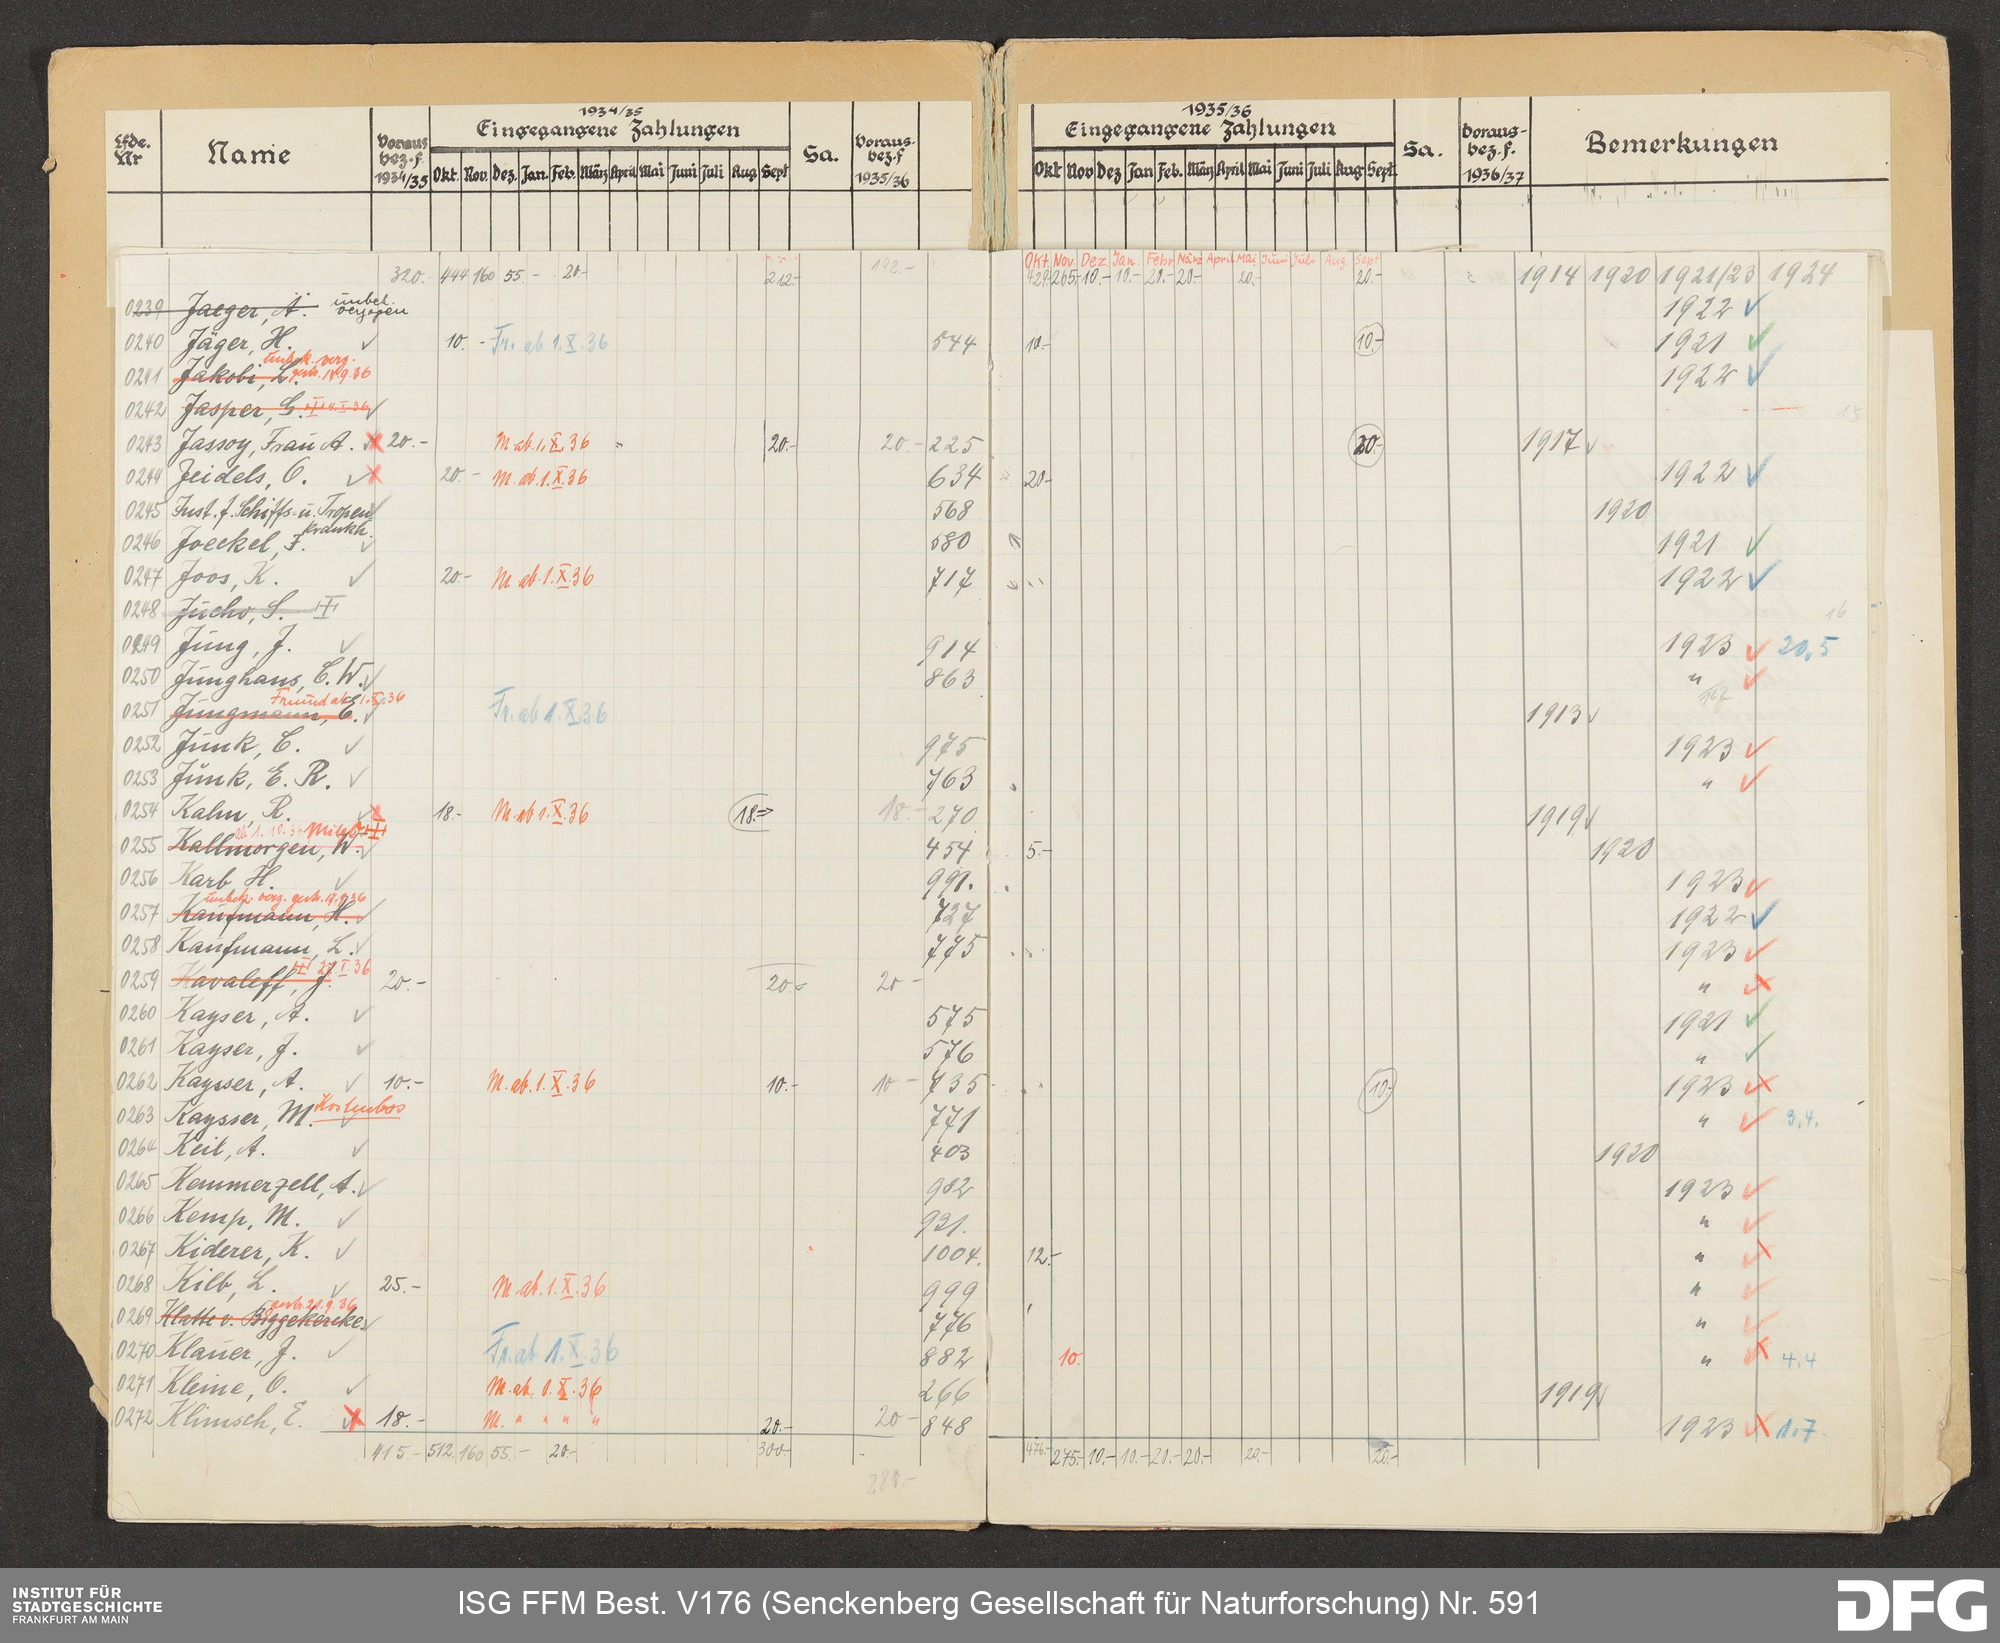 Lfde. Nr Name Voraus bez. f. 1934/35 1934/35 Eingegangene Zahlungen Okt. Nov. Dez. Jan. Feb. März April Mai Juni Juli Aug Sept Sa. Voraus- bez. f 1935/36
1935/36 Eingegangene Zahlungen Okt Nov Dez Jan Feb. März April Mai Juni Juli Aug Sept. Sa. Voraus- bez. f. 1936/37 Bemerkungen
Okt. Nov. Dez. Jan. Febr März April Mai Juni Juli Aug Sept
320.- 444 160 55.- 20.- 212.- 192.- 429. 265.- 10.- 10.- 20.- 20.- 20.- 20.- 1914 1920 1921/23 1924
0239 Jaeger, A. unbek. verzogen 1922 ✓
0240 Jäger, H. ✓ 10.- Fr. ab 1.X.36 544 10.- 10.- 1921 ✓
0241 Jakobi, L. unbek. verz. gestr. 14.9.36 1922 ✓
0242 Jasper, G. ✓
0243 Jassoy, Frau A. 20.- M. ab. 1.X.36 20.- 20.- 225 20.- 1917 ✓
0244 Jeidels, O. ✓ 20.- M. ab. 1.X.36 634 20.- 1922 ✓
0245 Inst. f. Schiffs- u. Tropen Krankh. 568 1920
0246 Joeckel, F. ✓ 580 1921 ✓
0247 Joos, K. ✓ 20.- M. ab. 1.X.36 717 1922 ✓
0248 Jucho, S. 16
0249 Jung, J. ✓ 914 1923 ✓ 20,5
0250 Junghans, C. W. ✓ 863 " ✓
0251 Jungmann, E. ✓ Freund ab 1.X.36 Fr. ab 1.X.36 1913 ✓ 17
0252 Junk, C. ✓ 975 1923 ✓
0253 Junk, E. R. ✓ 763 " ✓
0254 Kahn, R. 18.- M. ab 1.X.36 18.- 18.- 270 1919 ✓
0255 Kallmorgen, W. ✓ ab 1.10.36 454 5.- 1920
0256 Karb H. ✓ 991. 1923 ✓
0257 Kaufmann, H. ✓ unbek. verz. gestr. 17.9.36 727 1922 ✓
0258 Kaufmann, L. ✓ 775 1923 ✓
0259 Kavaleff, J. 27.I.36 20.- 20.- 20.- "
0260 Kayser, A. ✓ 575 1921 ✓
0261 Kayser, J. ✓ 576 " ✓
0262 Kaysser, A. ✓ 10.- M. ab. 1.X.36 10.- 10.- 735 10.- 1923
0263 Kaysser, M. ✓ Kostenlos 771 " ✓ 3.4.
0264 Keil, A. ✓ 403 1920
0265 Kemmerzell, A. ✓ 982 1923 ✓
0266 Kemp, M. ✓ 921. " ✓
0267 Kiderer, K. ✓ 1004. 12.- "
0268 Kilb, L. ✓ 25.- M. ab. 1.X.36 999 " ✓
0269 Klatte v. Biggekercke ✓ gestr. 21.9.36 776 " ✓
0270 Klauer, J. ✓ Fr. ab 1.X.36 882 10. " 4.4
0271 Kleine, O. ✓ M. ab. 1.X.36 266 1919 ✓
0272 Klimsch, E. 18.- M. " " " " 20.- 20.- 848 1923 1.7.
415.- 512. 160 55.- 20.- 300.- 476.- 275.- 10.- 10.- 20.- 20.- 20.- 20.-
280.-
INSTITUT FÜR STADTGESCHICHTE FRANKFURT AM MAIN
ISG FFM Best. V176 (Senckenberg Gesellschaft für Naturforschung) Nr. 591
DFG